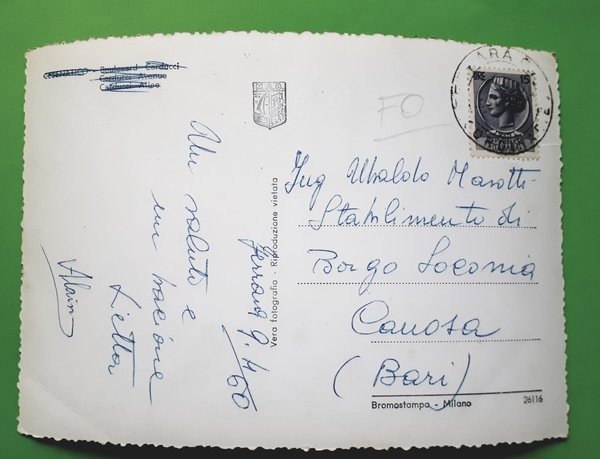 CESENATICO - Boulevard Carducci
Carducci Avenue
Carducci Allee
Un saluto e
un bacione
Lietta
Ferrara 9.4/60
Vera fotografia - Riproduzione vietata
FO
LIRE 15
Ing Ubaldo Marotti
Stabilimento di
Borgo Soconia
Canosa
(Bari)
Bromostampa - Milano
26116